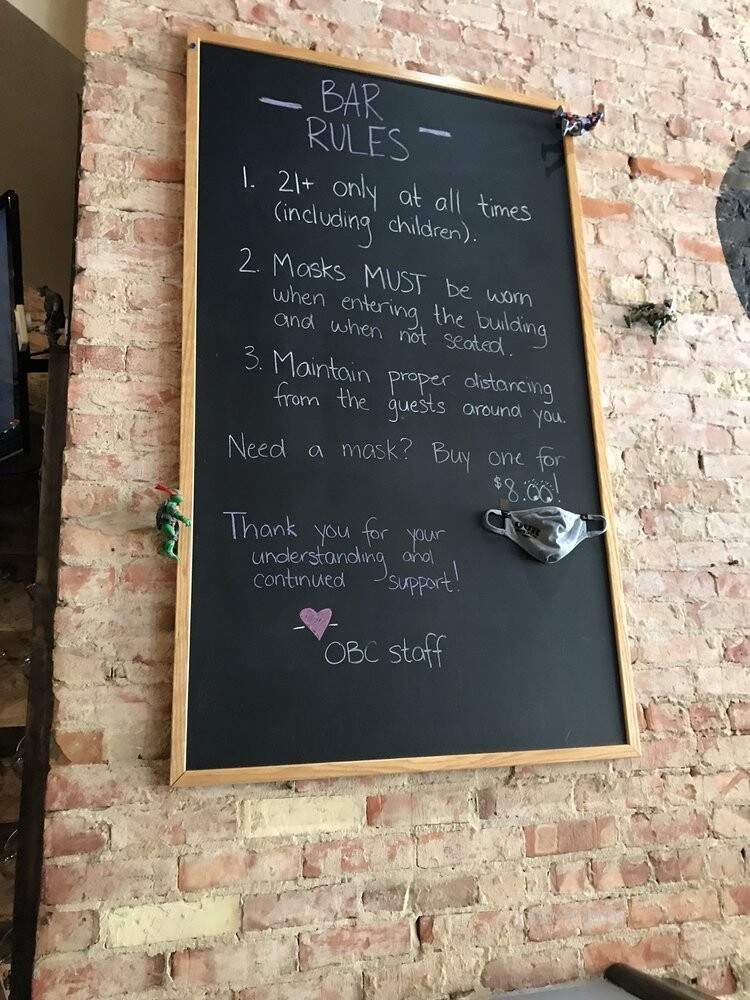 BAR
RULES
1. 21+ only at all times
(including children).
2. Masks MUST be worn
when entering the building
and when not seated.
3. Maintain proper distancing
from the guests around you.
Need a mask? Buy one for
$8.00!
Thank you for your
understanding and
continued support!
OBC staff